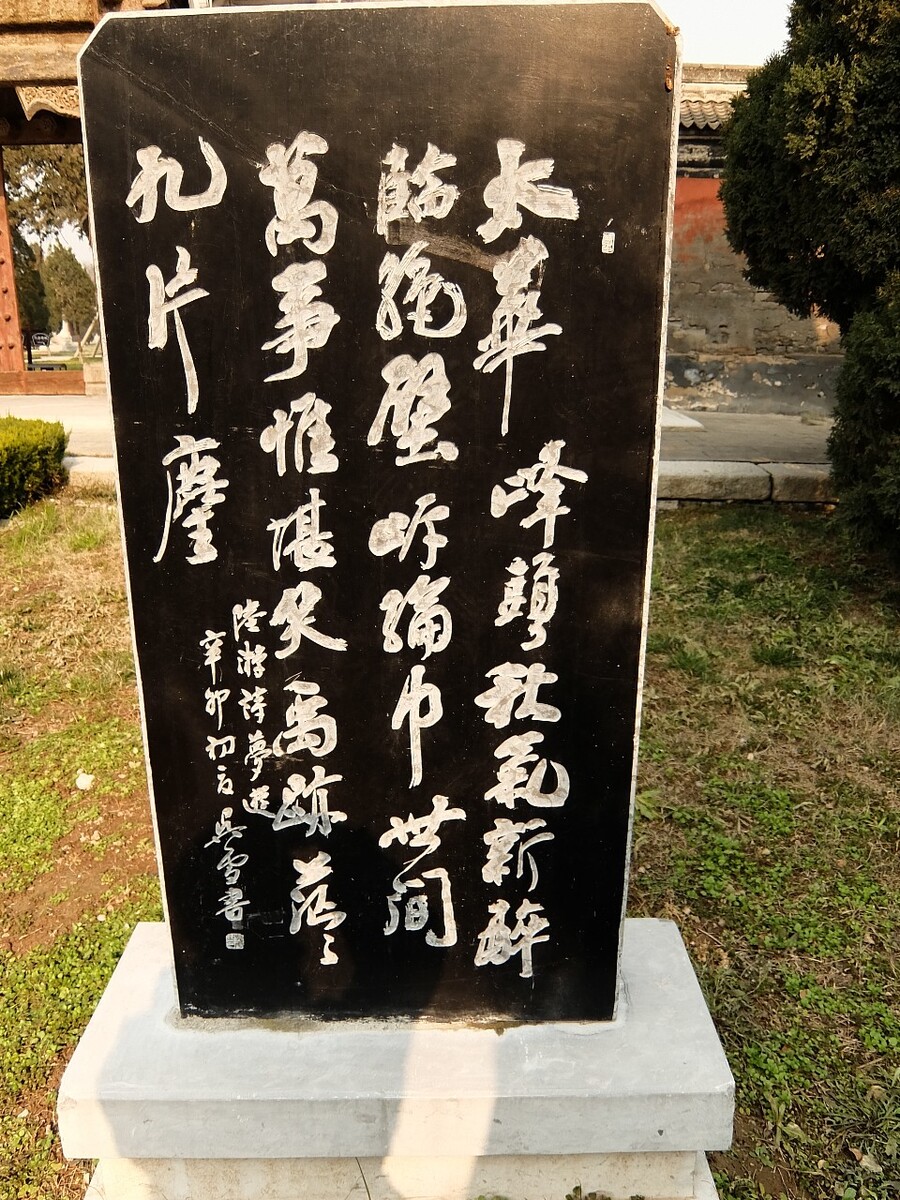 太華峰頭秋氣新醉
臨絕壁岸綸巾世間
萬事惟堪笑禹跡茫〻
九片塵
陸游詩夢遊
辛卯初夏吳雪書